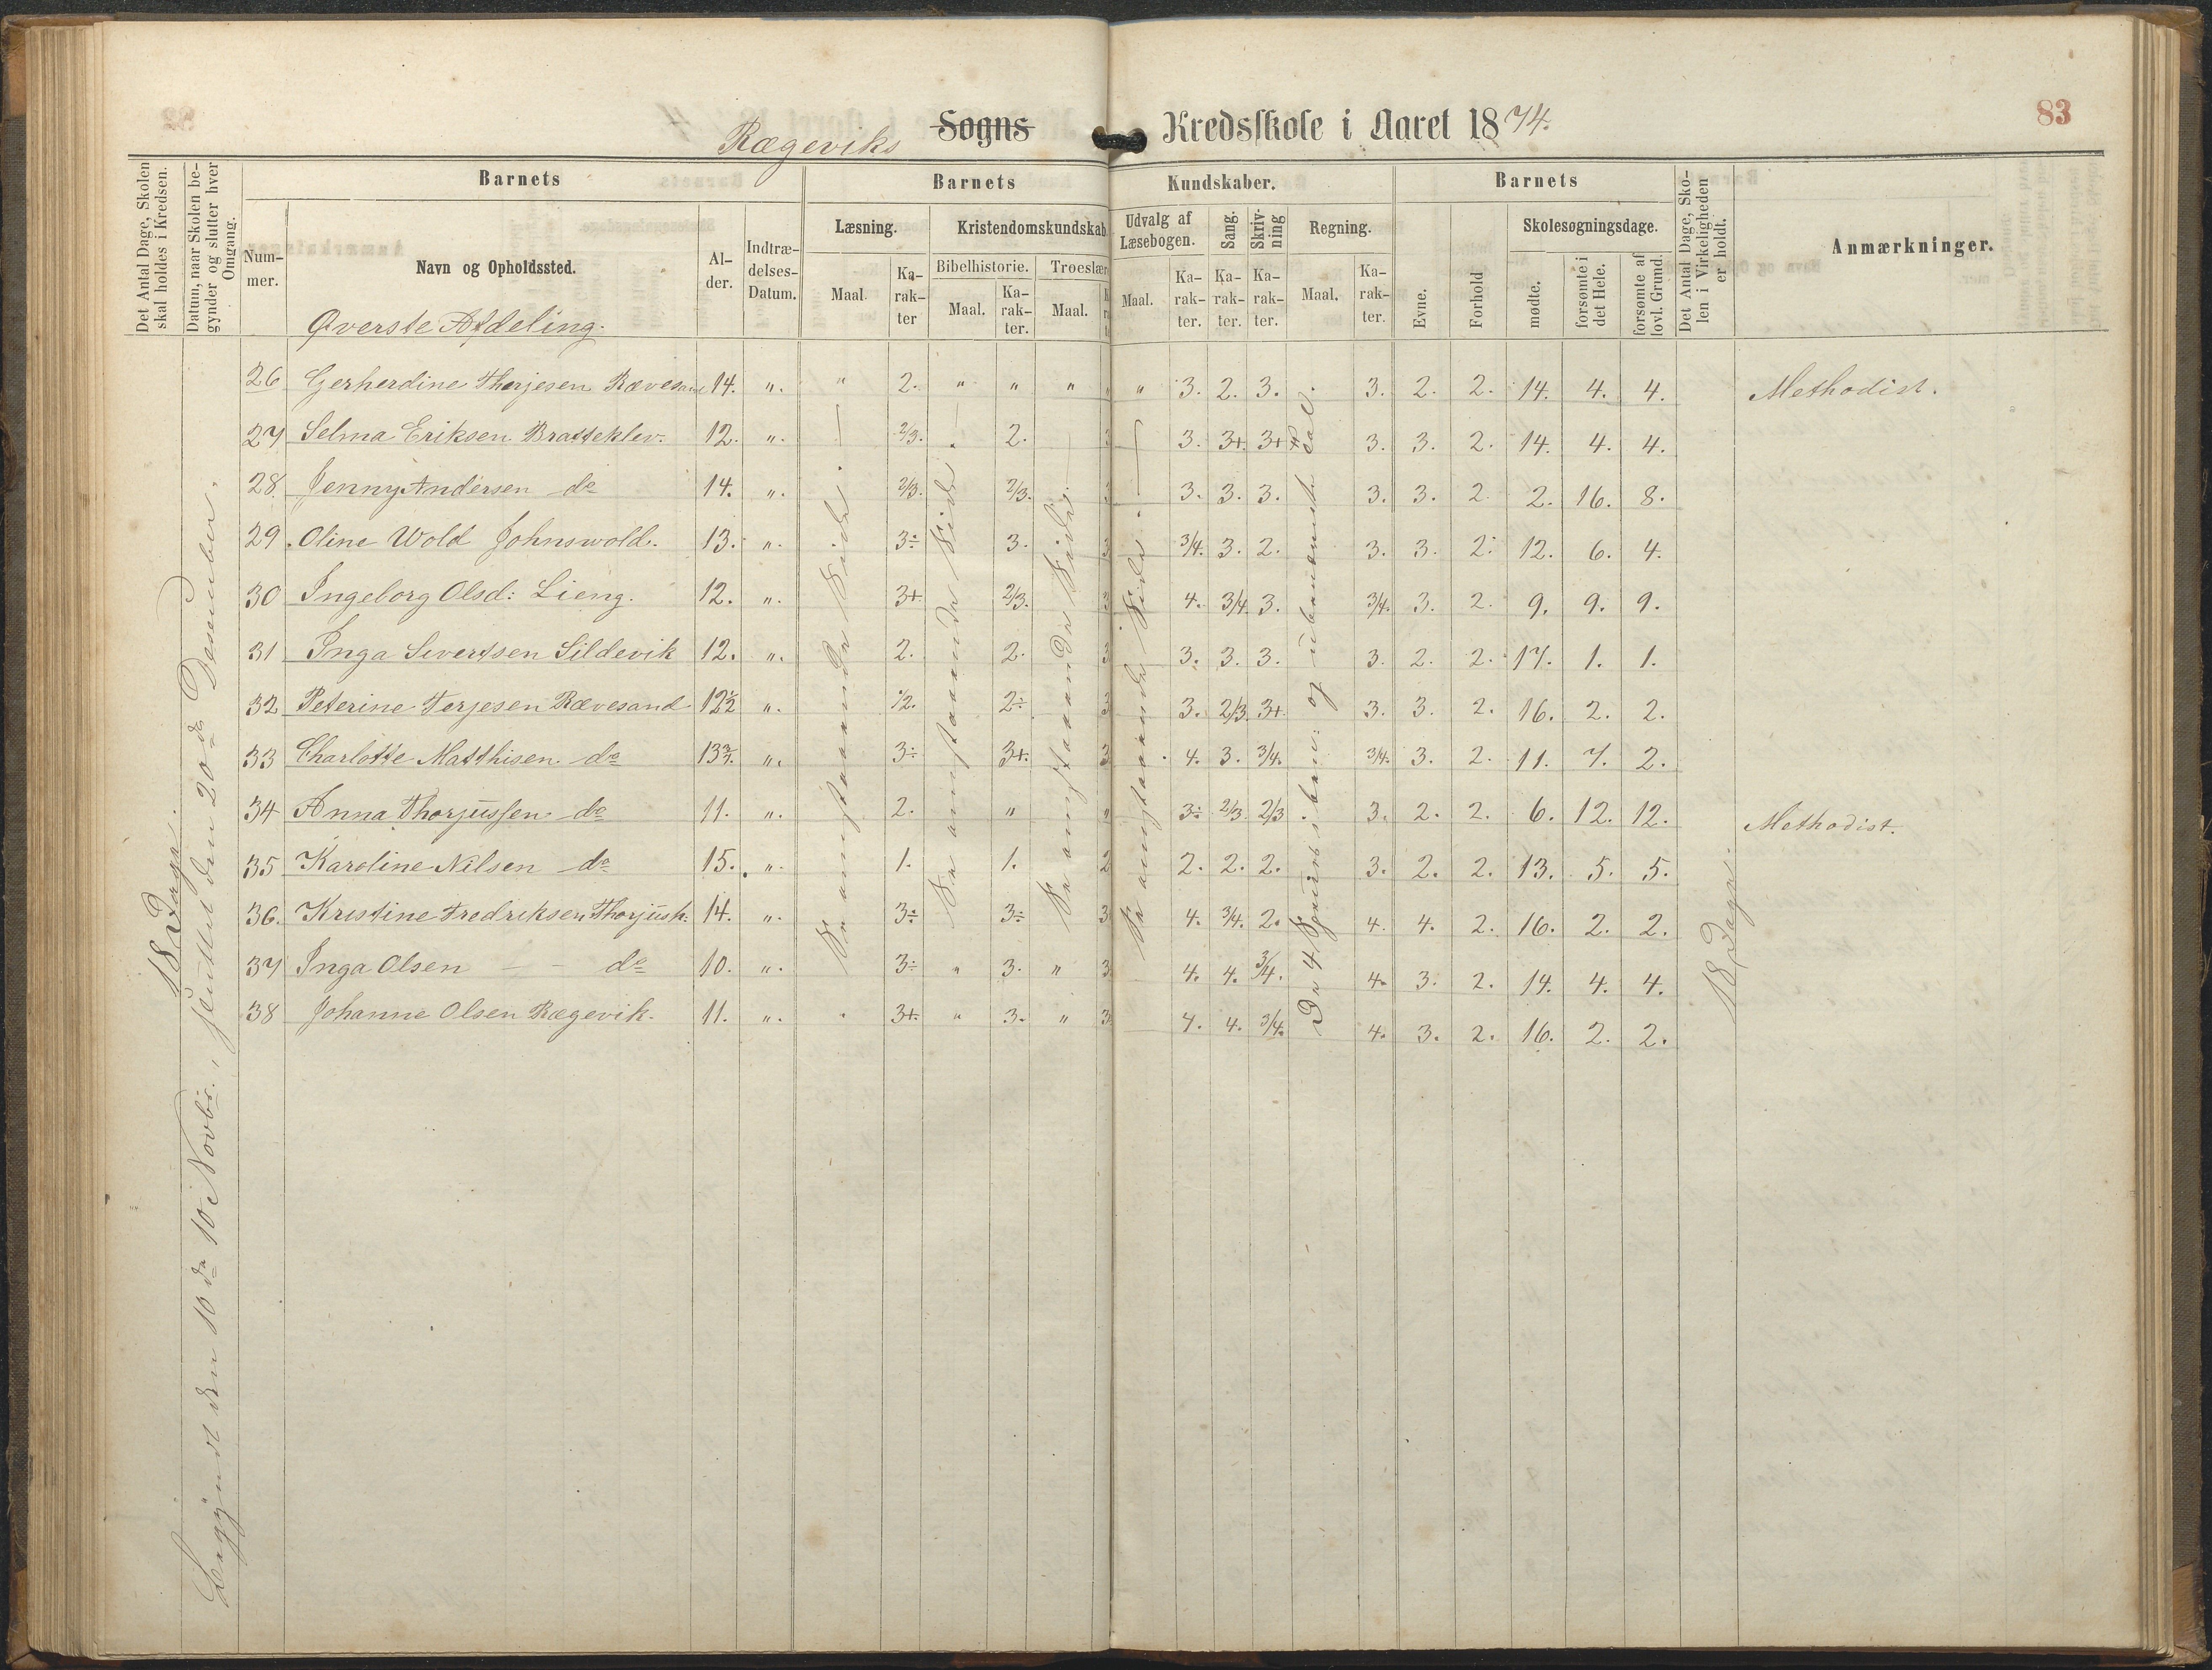 Rægeviks Sogns Kredsskole i Aaret 1874. 83
Det Antal Dage, Skolen skal holdes i Kredsen.
Datum, naar Skolen begynder og slutter hver Omgang.
Barnets
Barnets Kundskaber.
Barnets
Det Antal Dage, Skolen i Virkeligheden er holdt.
Anmærkninger.
Nummer.
Navn og Opholdssted.
Alder.
Indtrædelses-Datum.
Læsning.
Kristendomskundskab
Udvalg af Læsebogen.
Sang.
Skrivning
Regning.
Evne.
Forhold
Skolesøgningsdage.
Bibelhistorie. Troeslær
Maal. Karakter Maal. Karakter. Maal. Maal. Karakter. Karakter. Karakter. Maal. Karakter.
mødte. forsømte i det Hele. forsømte af lovl. Grund.
Øverste Afdeling.
26 Gerherdine Therjesen Rævesand 14. " " 2. " " " " " 3. 2. 3. 3. 2. 2. 14. 4. 4. Methodist.
27 Selma Eriksen Bratteklev. 12. " 2/3. 2. 3 3. 3+. 3+ 3. 3. 2. 14. 4. 4.
28. Jenny Andersen do 14. " 2/3. 2/3. 3 3. 3. 3. 3. 3. 2. 2. 16. 8.
29. Oline Wold Johnswold. 13. " 3÷ 3. 3 3/4. 3. 2. 3. 3. 2. 12. 6. 4.
30 Ingeborg Olsd: Lieng. 12. " 3+ 2/3. 3 4. 3/4. 3. 3/4. 3. 2. 9. 9. 9.
31 Inga Sivertsen Sildevik 12. " 2. 2. 3 3. 3. 3. 3. 2. 2. 17. 1. 1.
32 Peterine Terjesen Rævesand 12½ " ½. 2÷ 3 3. 2/3. 3+. 3. 3. 2. 16. 2. 2.
33 Charlotte Matthisen do 13¾. " 3÷ 3+. 3 4. 3. 3/4. 3/4. 3. 2. 11. 7. 2.
34 Anna Thorjussen do 11. " 2. " " 3÷ 2/3. 2/3 3. 2. 2. 6. 12. 12. Methodist.
35 Karoline Nilsen do 15. " 1. 1. 2 2. 2. 2. 3. 2. 2. 13. 5. 5.
36. Kristine Fredriksen Thorjush: 14. " 3÷ 3÷ 3 4. 3/4. 2. 4. 4. 2. 16. 2. 2.
37 Inga Olsen - - do 10. " 3÷ " 3. " 3 4. 4. 3/4. 4. 3. 2. 14. 4. 4.
38 Johanne Olsen Rægevik. 11. " 3+. " 3. " 3 4. 4. 3/4. 4. 3. 2. 16. 2. 2.
18 Dage.
Begyndt den 10de Novbr., sluttet den 20de Desember.
Se omstaaende Side.
Se omstaaende Side.
Se omstaaende Side.
Se omstaaende Side.
De 4 Spesies ben: og ubenævnte Tal.
18 Dage.